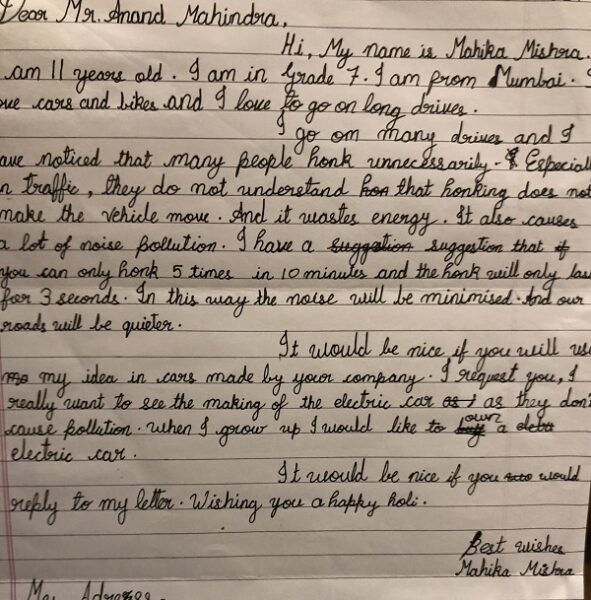 Dear Mr. Anand Mahindra,
Hi, My name is Mahika Mishra.
am 11 years old. I am in Grade 7. I am from Mumbai. I
ove cars and bikes and I love to go on long drives.
I go on many drives and I
ave noticed that many people honk unnecessarily. Especiall
n traffic, they do not understand hon that honking does not
make the vehicle move. And it wastes energy. It also causes
a lot of noise pollution. I have a suggestion suggestion that if
you can only honk 5 times in 10 minutes and the honk will only las
for 3 seconds. In this way the noise will be minimised. And our
roads will be quieter.
It would be nice if you will use
my idea in cars made by your company. I request you, I
really want to see the making of the electric car as I as they don'
cause pollution. When I grow up I would like to buy own a
electric car.
It would be nice if you would
reply to my letter. Wishing you a happy holi.
Best wishes
Mahika Mishra
My Adress.